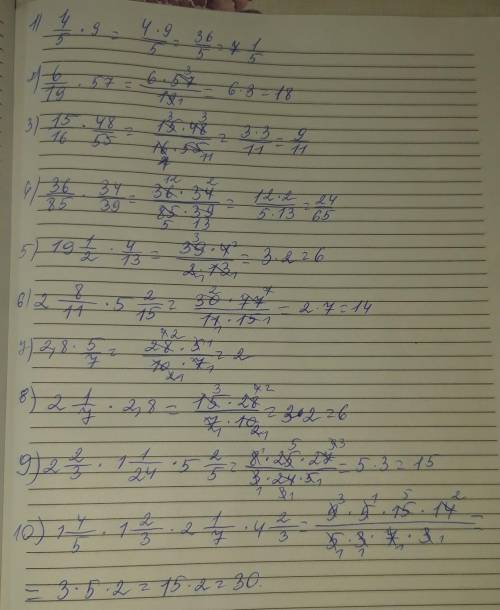 1) 4/5 · 9 = 4·9/5 = 36/5 = 7 1/5
2) 6/19 · 57 = 6·57/19 = 6·3 = 18
3) 15/16 · 48/55 = 15·48/16·55 = 3·3/11 = 9/11
4) 36/85 · 34/39 = 36·34/85·39 = 12·2/5·13 = 24/65
5) 19 1/2 · 4/13 = 39·4/2·13 = 3·2 = 6
6) 2 8/11 · 5 2/15 = 30·77/11·15 = 2·7 = 14
7) 2,8 · 5/7 = 28·5/10·7 = 2
8) 2 1/7 · 2,8 = 15·28/7·10 = 3·2 = 6
9) 2 2/3 · 1 1/24 · 5 2/5 = 8·25·27/3·24·5 = 5·3 = 15
10) 1 4/5 · 1 2/3 · 2 1/7 · 4 2/3 = 9·5·15·14/5·3·7·3 =
= 3·5·2 = 15·2 = 30.